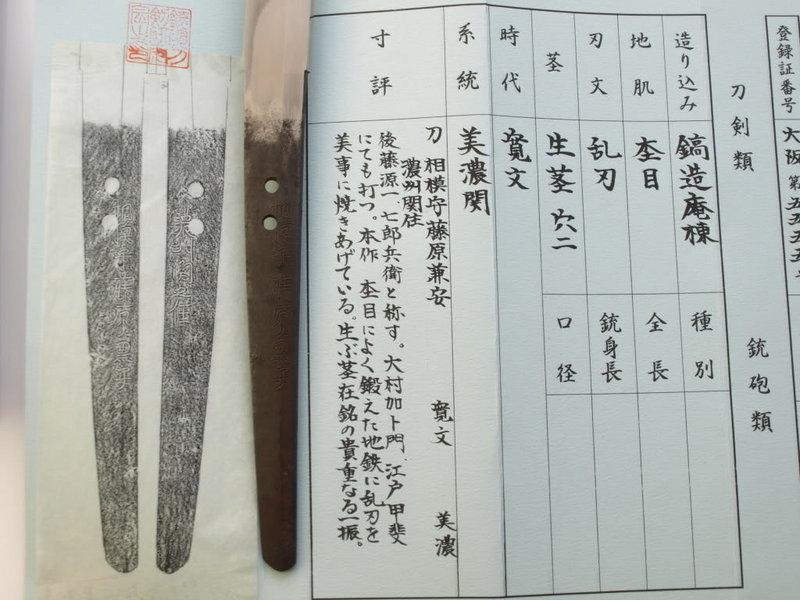 登録証番号
大阪 第五五五五
刀剣類
銃砲類
造り込み
鎬造庵棟
種別
地肌
杢目
全長
刃文
乱刃
銃身長
茎
生茎 穴二
口径
時代
寛文
系統
美濃関
寸評
刀 相模守藤原兼安 寛文 美濃
濃州関住
後藤源一、七郎兵衛と称す。大村加ト門、江戸甲斐
にても打つ。本作 杢目によく鍛えた地鉄に乱刃を
美事に焼きあげている。生ぶ茎在銘の貴重なる一振。